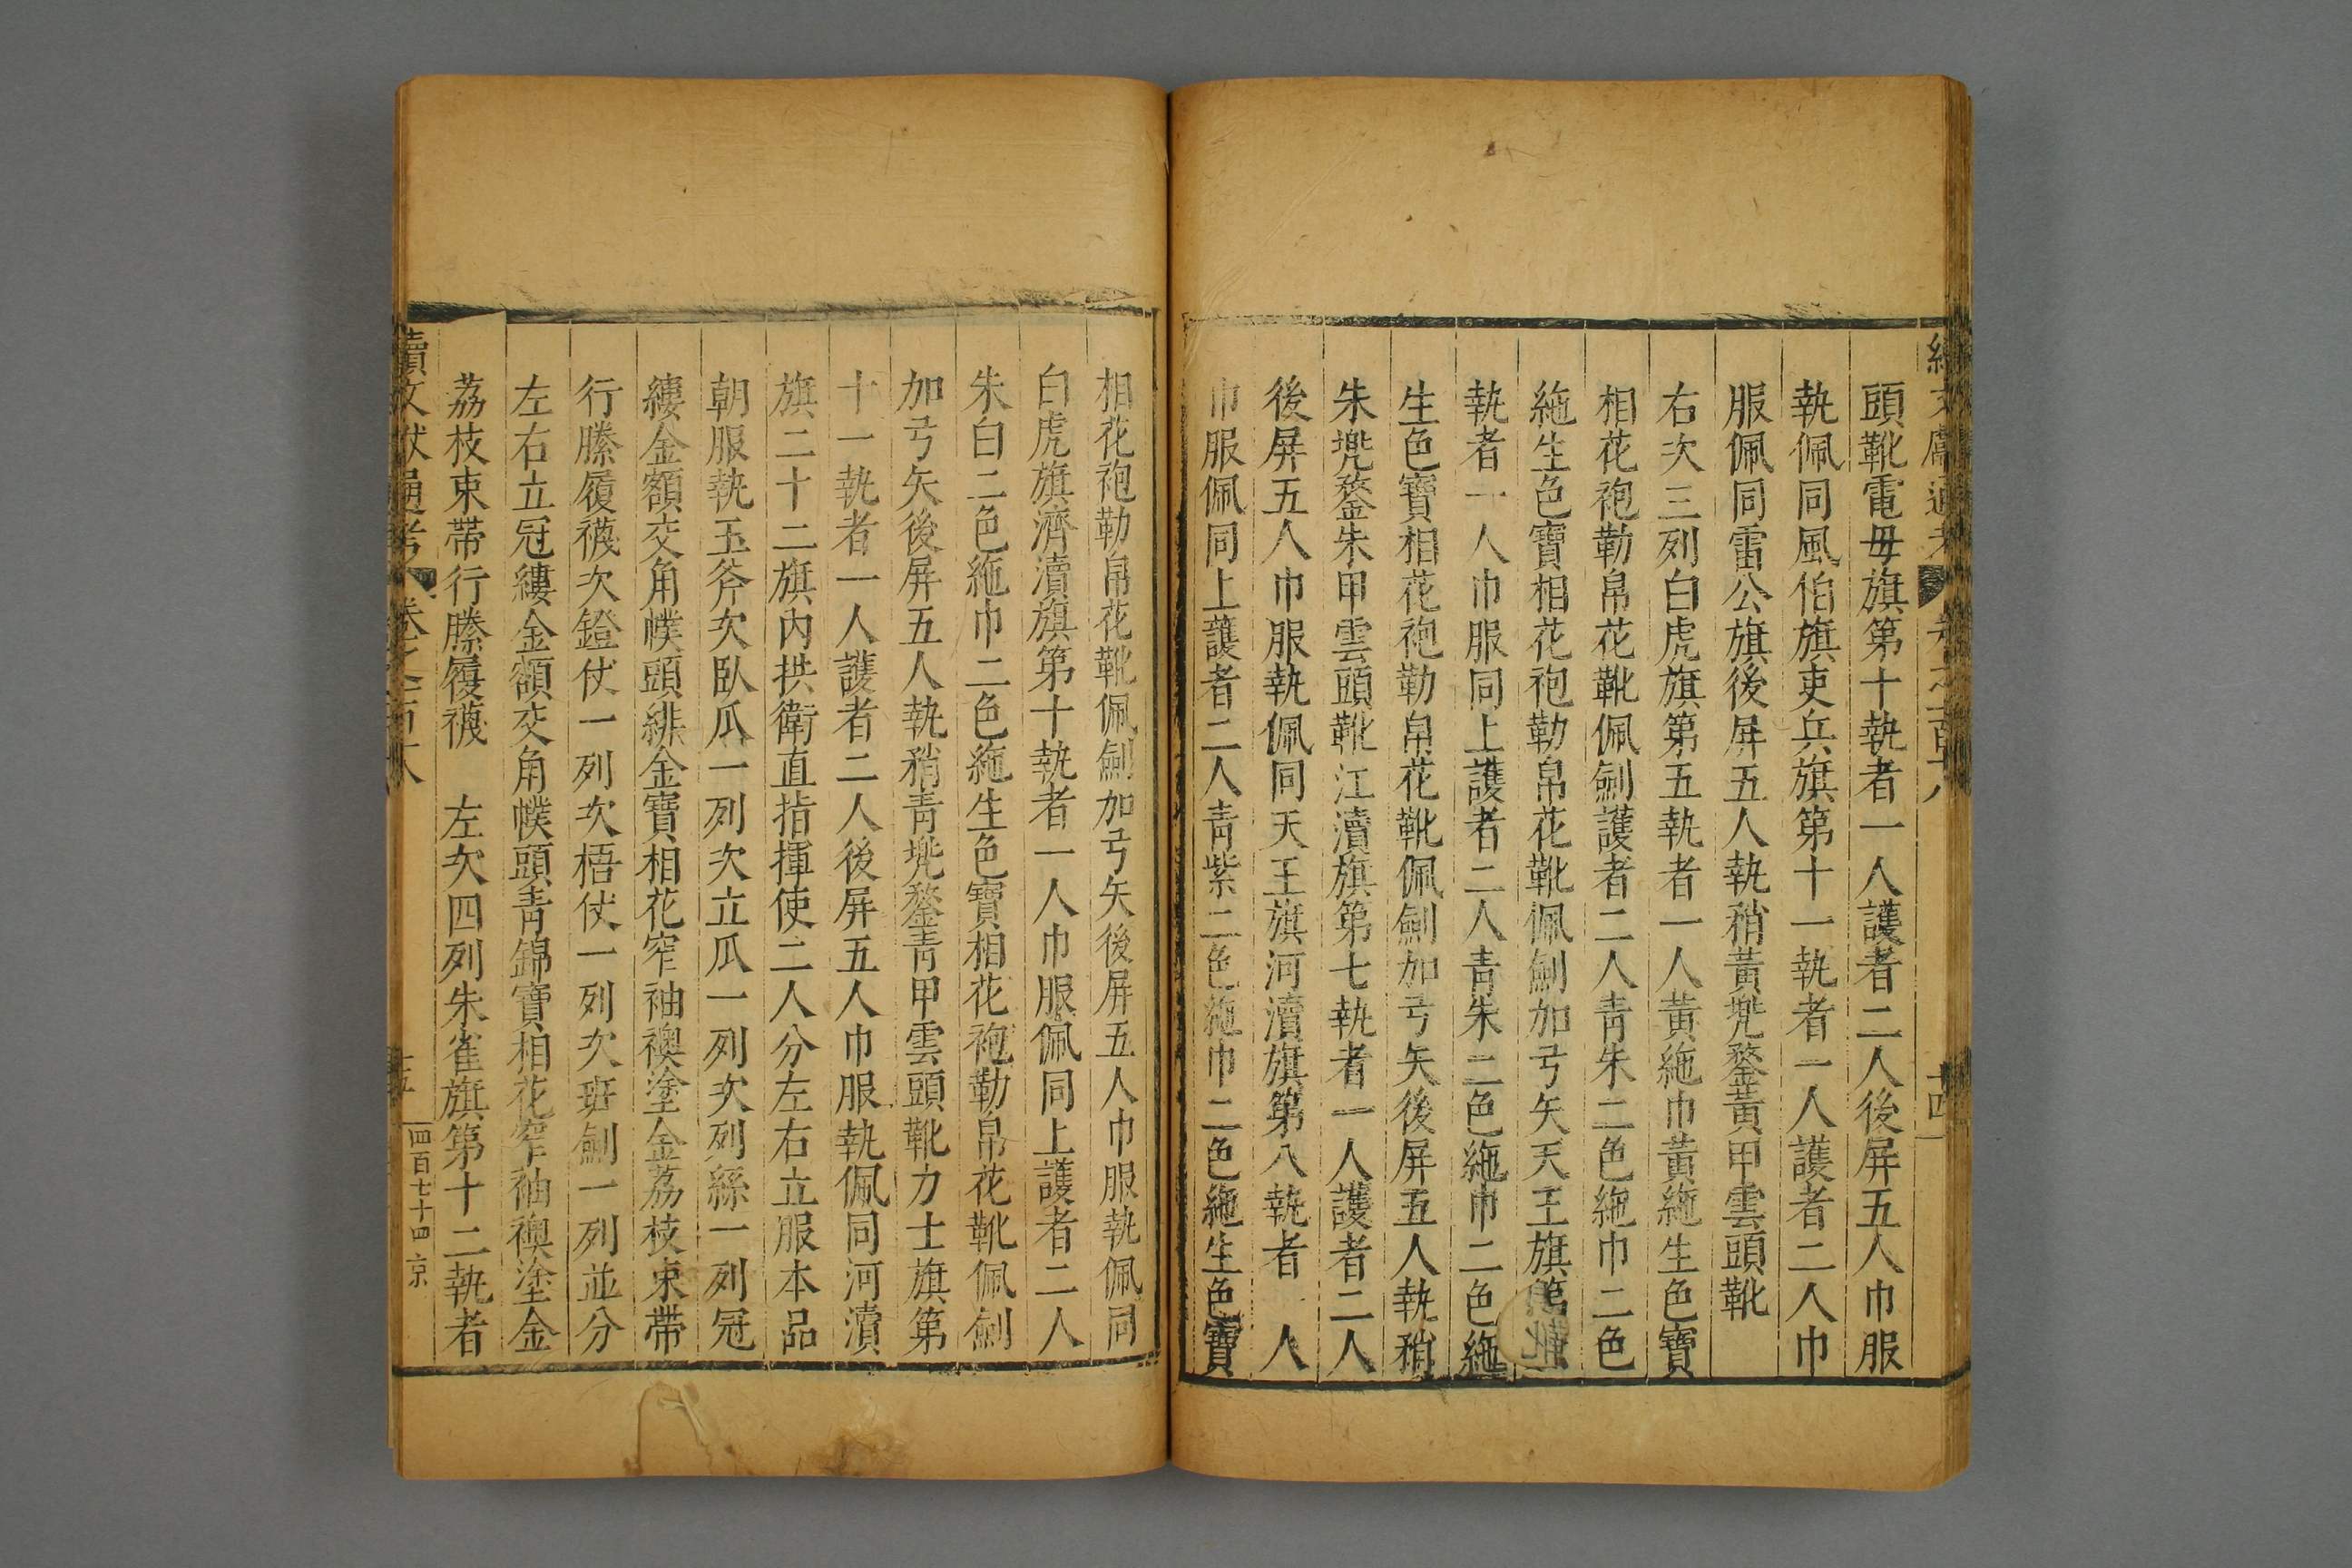 頭靴電毋旗第十執者一人護者二人後屏五人巾服
執佩同風伯旗吏兵旗第十一執者一人護者二人巾
服佩同雷公旗後屏五人執矟黃兠鍪黃甲雲頭靴
右次三列白虎旗第五執者一人黃絁巾黃絁生色寶
相花袍勒帛花靴佩劍護者二人青朱二色絁巾二色
絁生色寶相花袍勒帛花靴佩劍加弓矢天王旗第
執者一人巾服同上護者二人青朱二色絁巾二色絁
生色寶相花袍勒帛花靴佩劍加弓矢後屏五人執矟
朱兠鍪朱甲雲頭靴江瀆旗第七執者一人護者二人
後屏五人巾服執佩同天王旗河瀆旗第八執者一人
巾服佩同上護者二人青紫二色絁巾二色絁生色寶
相花袍勒帛花靴佩劍加弓矢後屏五人巾服執佩同
白虎旗濟瀆旗第十執者一人巾服佩同上護者二人
朱白二色絁巾二色絁生色寶相花袍勒帛花靴佩劍
加弓矢後屏五人執矟青兠鍪青甲雲頭靴力士旗第
十一執者一人護者二人後屏五人巾服執佩同河瀆
旗二十二旗內拱衛直指揮使二人分左右立服本品
朝服執玉斧次臥瓜一列次立瓜一列次列絲一列冠
縷金額交角幞頭緋金寶相花窄袖襖塗金荔枝束帶
行縢履襪次鐙仗一列次梧仗一列次班劍一列並分
左右立冠縷金額交角幞頭青錦寶相花窄袖襖塗金
荔枝束帶行縢履襪 左次四列朱雀旗第十二執者
續文獻通考 卷之一百六
十五 四百七十四 京